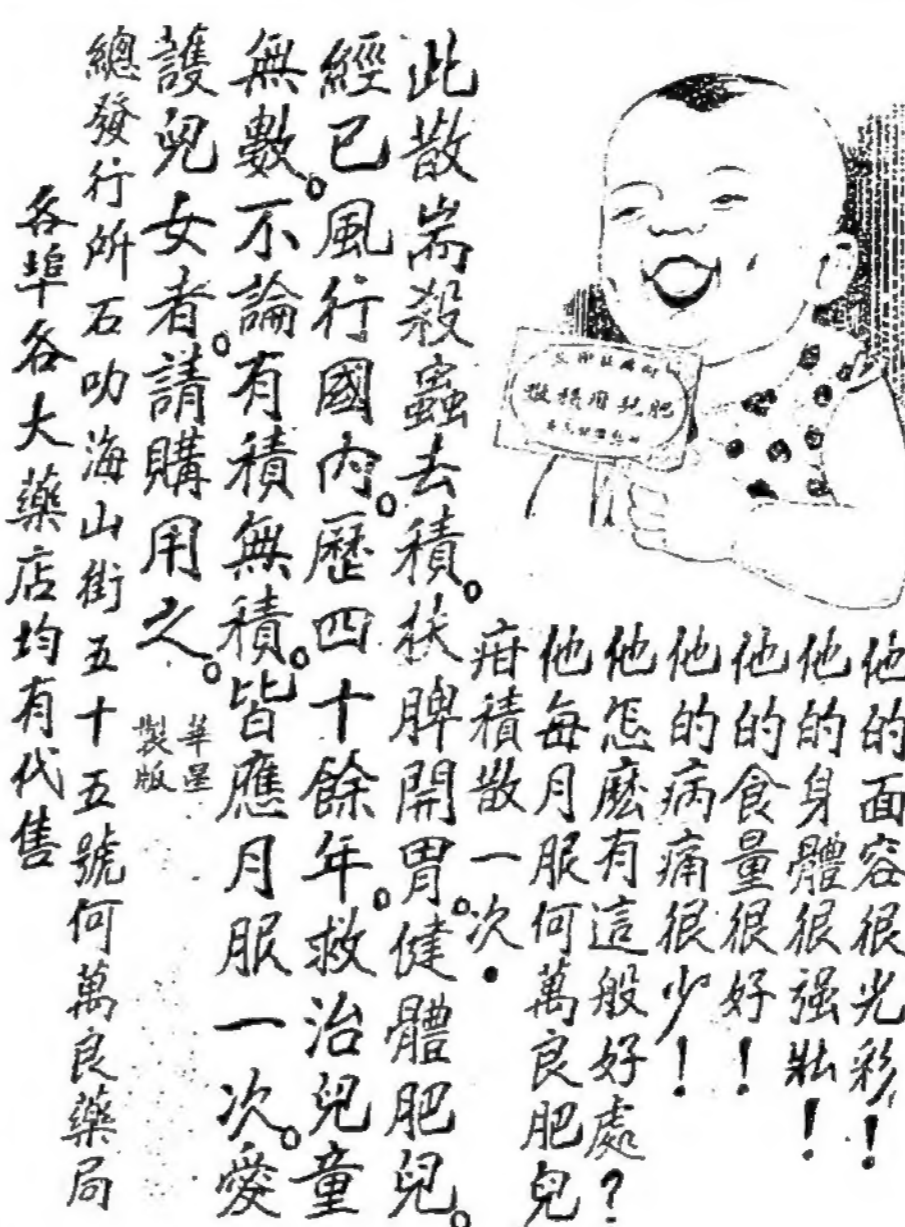 他的面容很光彩！
他的身體很强壯！
他的食量很好！
他的病痛很少！
他怎麽有這般好處？
他每月服何萬良肥兒
疳積散一次．
此散耑殺蟲去積。扶脾開胃。健體肥兒。
經已風行國內。歷四十餘年。救治兒童
無數。不論有積無積。皆應月服一次。愛
護兒女者。請購用之。
華星
製版
總發行所石叻海山街五十五號何萬良藥局
各埠各大藥店均有代售
肥兒疳積散